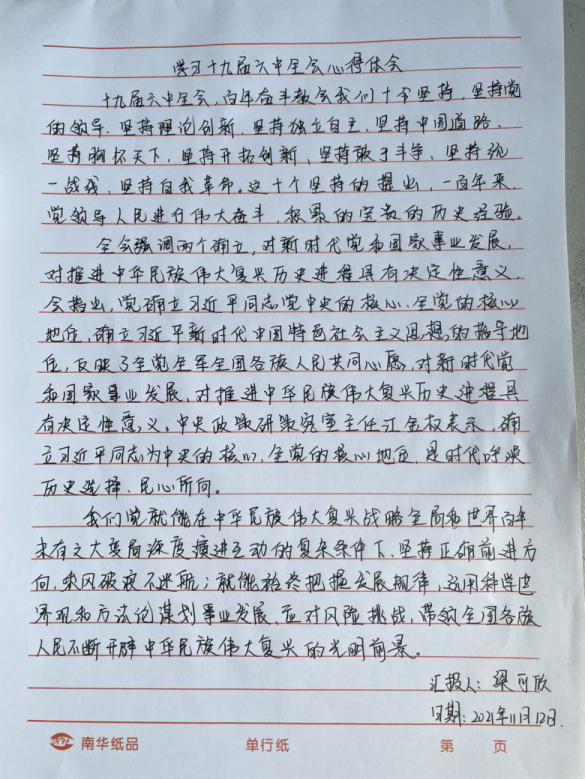 学习十九届六中全会心得体会
十九届六中全会，百年奋斗教会我们十个坚持，坚持党
的领导、坚持理论创新、坚持独立自主、坚持中国道路、
坚持胸怀天下、坚持开拓创新、坚持敢于斗争、坚持统
一战线、坚持自我革命。这十个坚持的提出，一百年来，
党领导人民进行伟大奋斗，积累的宝贵的历史经验。
全会强调两个确立，对新时代党和国家事业发展，
对推进中华民族伟大复兴历史进程具有决定性意义，
会指出，党确立习近平同志党中央的核心、全党的核心
地位，确立习近平新时代中国特色社会主义思想的指导地
位，反映了全党全军全国各族人民共同心愿，对新时代党
和国家事业发展、对推进中华民族伟大复兴历史进程具
有决定性意义，中央政策研究室主任江金权表示，确
立习近平同志为中央的核心，全党的核心地位，是时代呼唤
历史选择、民心所向。
我们党就能在中华民族伟大复兴战略全局和世界百年
未有之大变局深度演进互动的复杂条件下，坚持正确前进方
向，乘风破浪不迷航；就能始终把握发展规律，运用科学世
界观和方法论谋划事业发展、应对风险挑战，带领全国各族
人民不断开辟中华民族伟大复兴的光明前景。
汇报人：梁可欣
日期：2021年11月12日.
南华纸品 单行纸 第 页